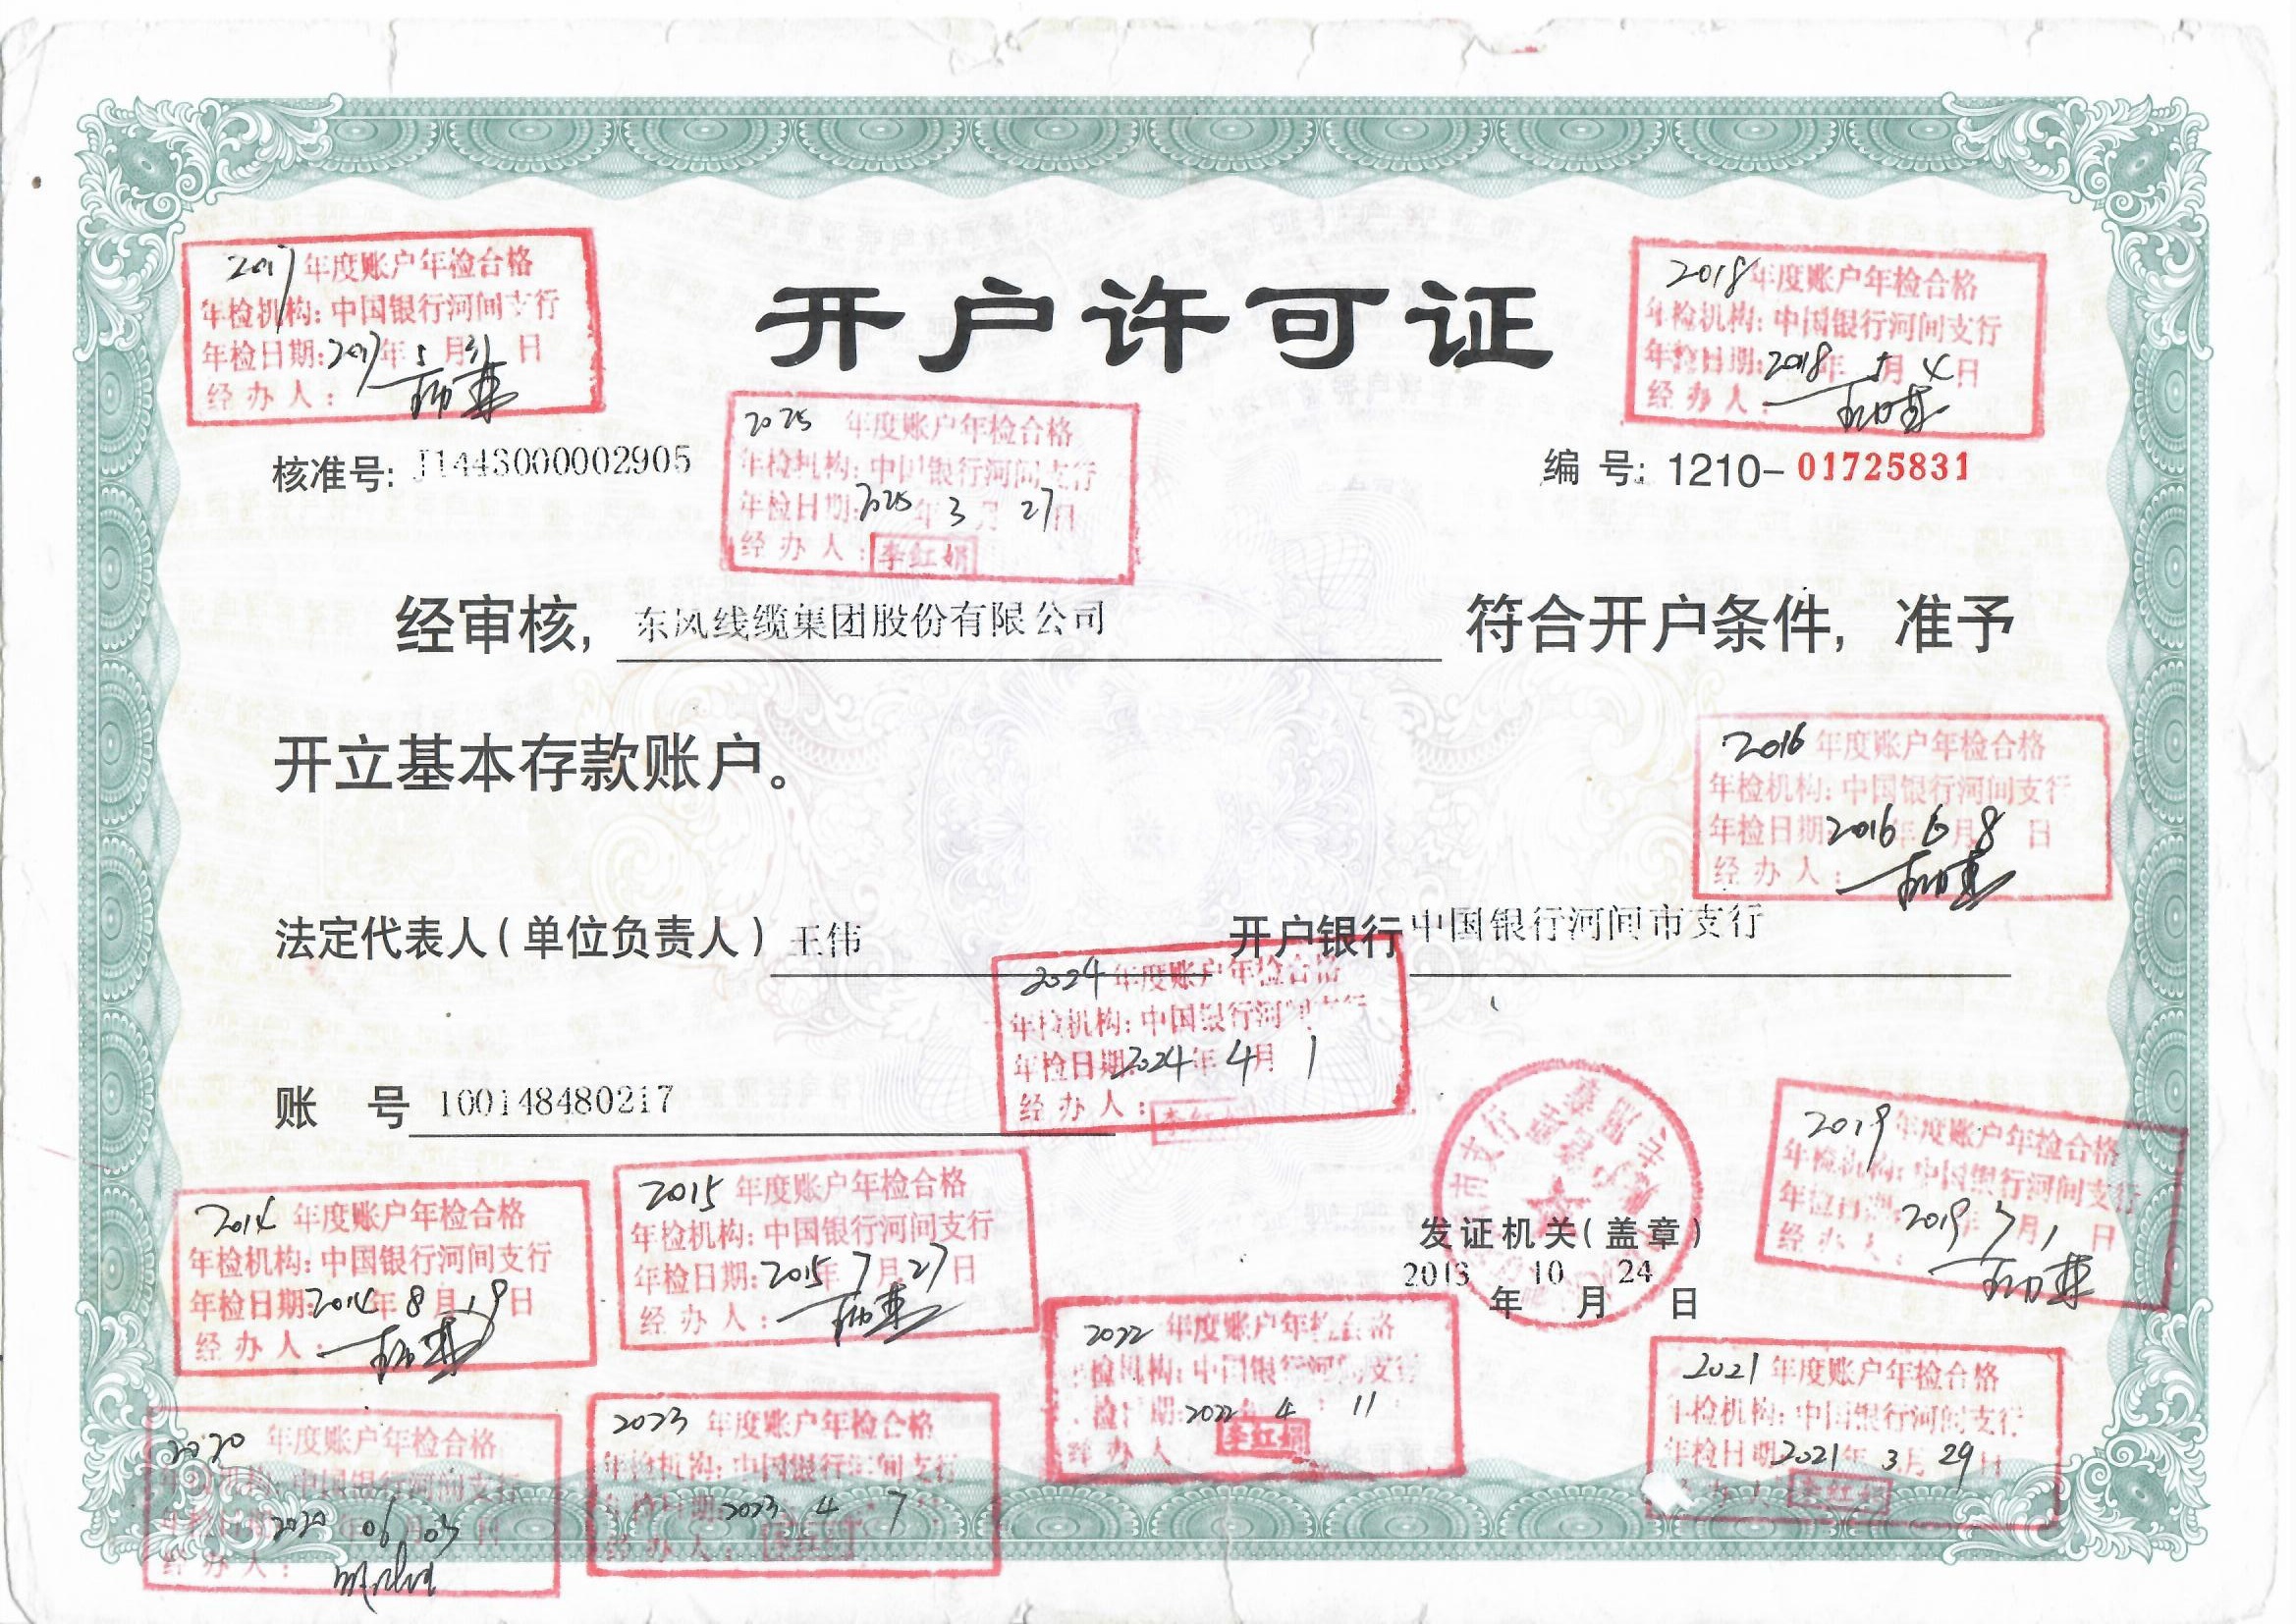 2017年度账户年检合格
年检机构:中国银行河间支行
年检日期:2017年5月31日
经办人:
开户许可证
2018年度账户年检合格
年检机构:中国银行河间支行
年检日期:2018年5月4日
经办人:
核准号: J1443000002905
2025年度账户年检合格
年检机构:中国银行河间支行
年检日期:2025年3月27日
经办人:李红娟
编号: 1210-01725831
经审核, 东风线缆集团股份有限公司 符合开户条件, 准予
开立基本存款账户。
2016年度账户年检合格
年检机构:中国银行河间支行
年检日期:2016年6月8日
经办人:
法定代表人(单位负责人) 王伟 开户银行 中国银行河间市支行
2024年度账户年检合格
年检机构:中国银行河间支行
年检日期:2024年4月1
经办人:李红娟
账号 100148480217
2014年度账户年检合格
年检机构:中国银行河间支行
年检日期:2014年8月19日
经办人:
2015年度账户年检合格
年检机构:中国银行河间支行
年检日期:2015年7月27日
经办人:
市支行
发证机关(盖章)
2013年10月24日
2019年度账户年检合格
年检机构:中国银行河间支行
年检日期:2019年7月1日
经办人:
2020年度账户年检合格
年检机构:中国银行河间支行
年检日期:2020年06月03日
经办人:
2023年度账户年检合格
年检机构:中国银行河间支行
年检日期:2023年4月7日
经办人:李红娟
2022年度账户年检合格
年检机构:中国银行河间支行
年检日期:2022 4 11
经办人 李红娟
2021年度账户年检合格
年检机构:中国银行河间支行
年检日期:2021年3月29日
经办人 李红娟